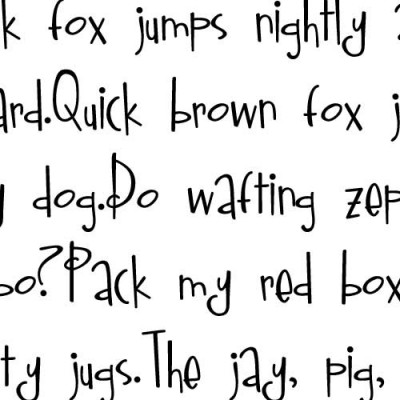 k fox jumps nightly
ard.Quick brown fox j
y dog.Do wafting zep
bo?Pack my red box
ty jugs.The jay, pig,